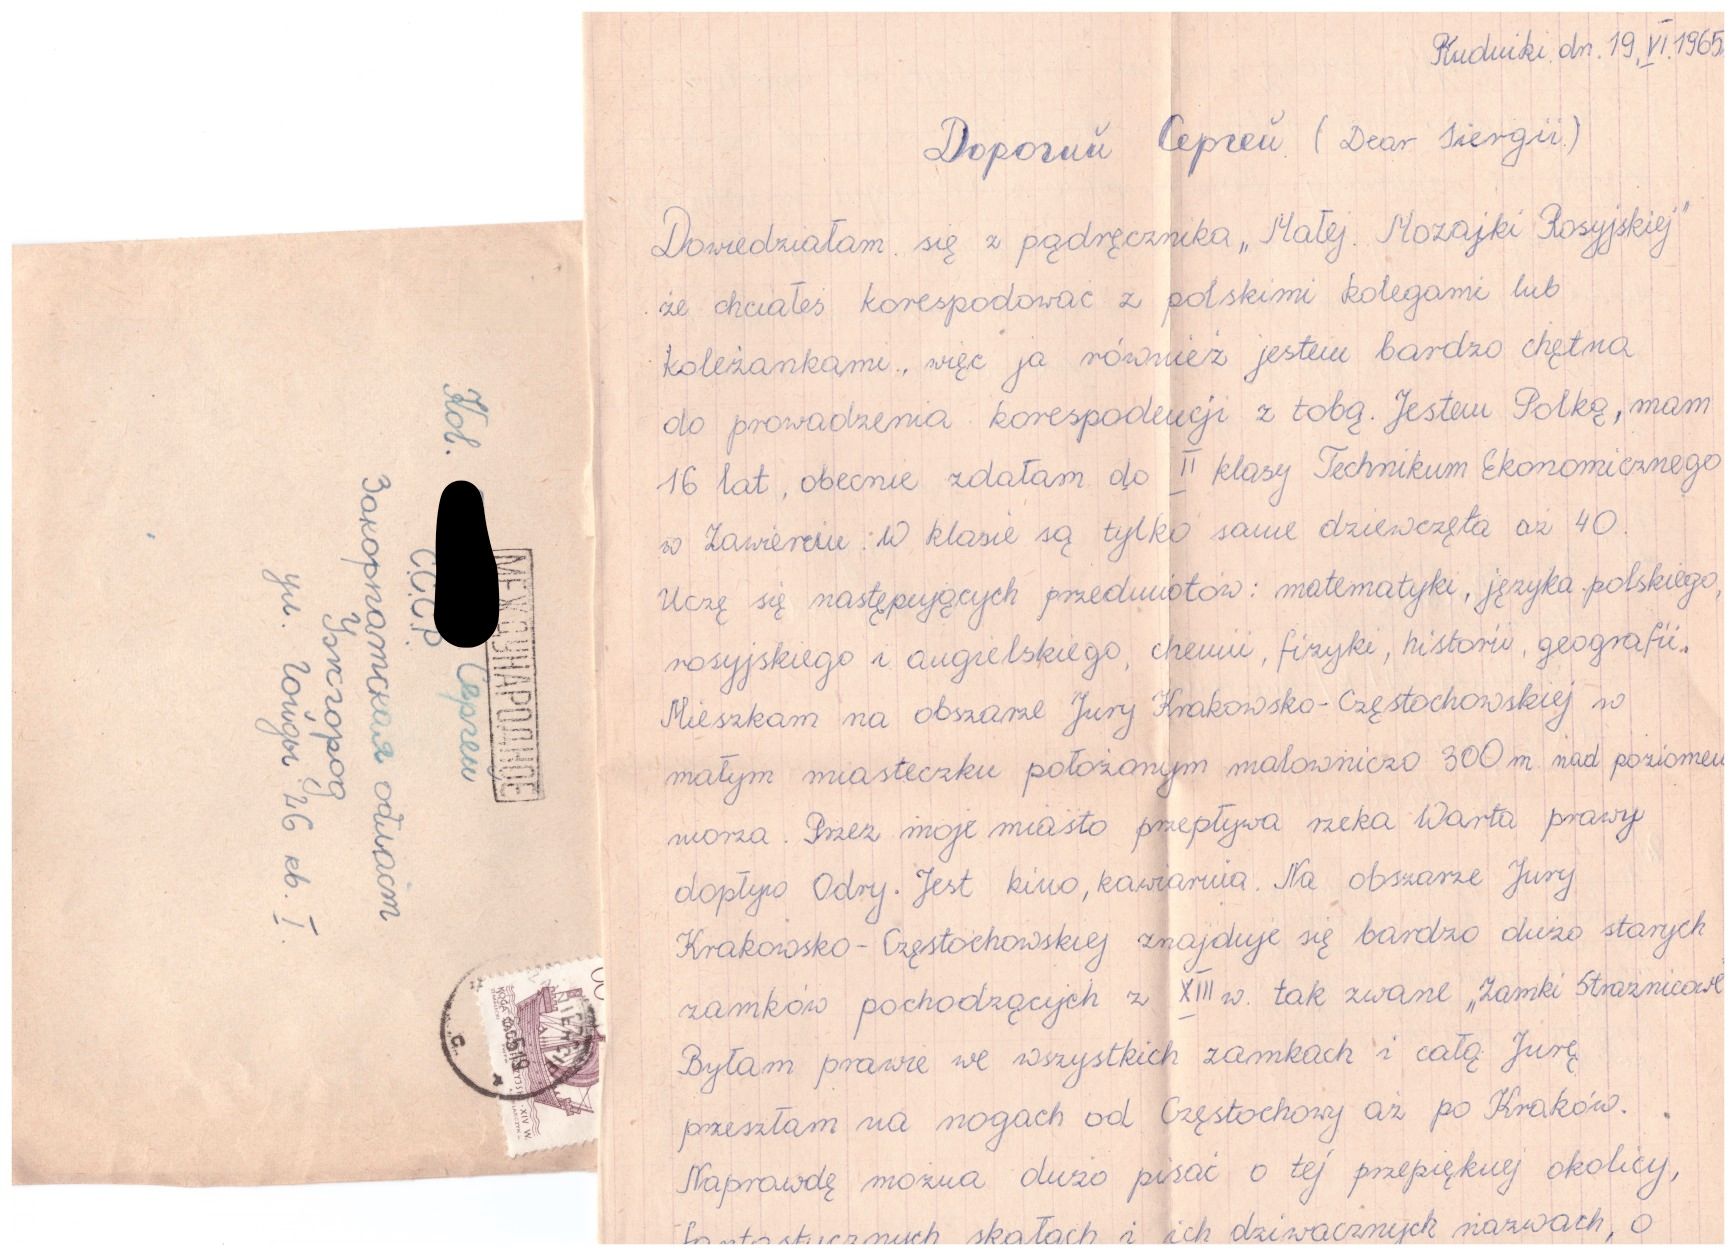 Rudniki dn. 19.VI.1965
Дорогий Сергей (Dear Siergii)
Dowiedziałam się z pądręcznika „Małej Mozajki Rosyjskiej"
że chciałeś korespodować z polskimi kolegami lub
koleżankami, więc ja również jestem bardzo chętna
do prowadzenia korespodencji z tobą. Jestem Polką, mam
16 lat, obecnie zdałam do II klasy Technikum Ekonomicznego
w Zawierciu. W klasie są tylko same dziewczęta aż 40.
Uczę się następujących przedmiotów: matematyki, języka polskiego,
rosyjskiego i angielskiego, chemii, fizyki, historii, geografii.
Mieszkam na obszarze Jury Krakowsko-Częstochowskiej w
małym miasteczku położonym malowniczo 300 m nad poziomem
morza. Przez moje miasto przepływa rzeka Warta prawy
dopływ Odry. Jest kino, kawiarnia. Na obszarze Jury
Krakowsko-Częstochowskiej znajduje się bardzo dużo starych
zamków pochodzących z XIII w. tak zwane „Zamki Strażnicowe"
Byłam prawie we wszystkich zamkach i całą Jurę
przeszłam na nogach od Częstochowy aż po Kraków.
Naprawdę można dużo pisać o tej przepięknej okolicy,
fantastycznych skałach i ich dziwacznych nazwach, o
Kol. Сергей
С.С.С.Р
Закарпатская область
Ужгород
ул. 46 кв. I.
МЕЖДУНАРОДНОЕ
XIV W.